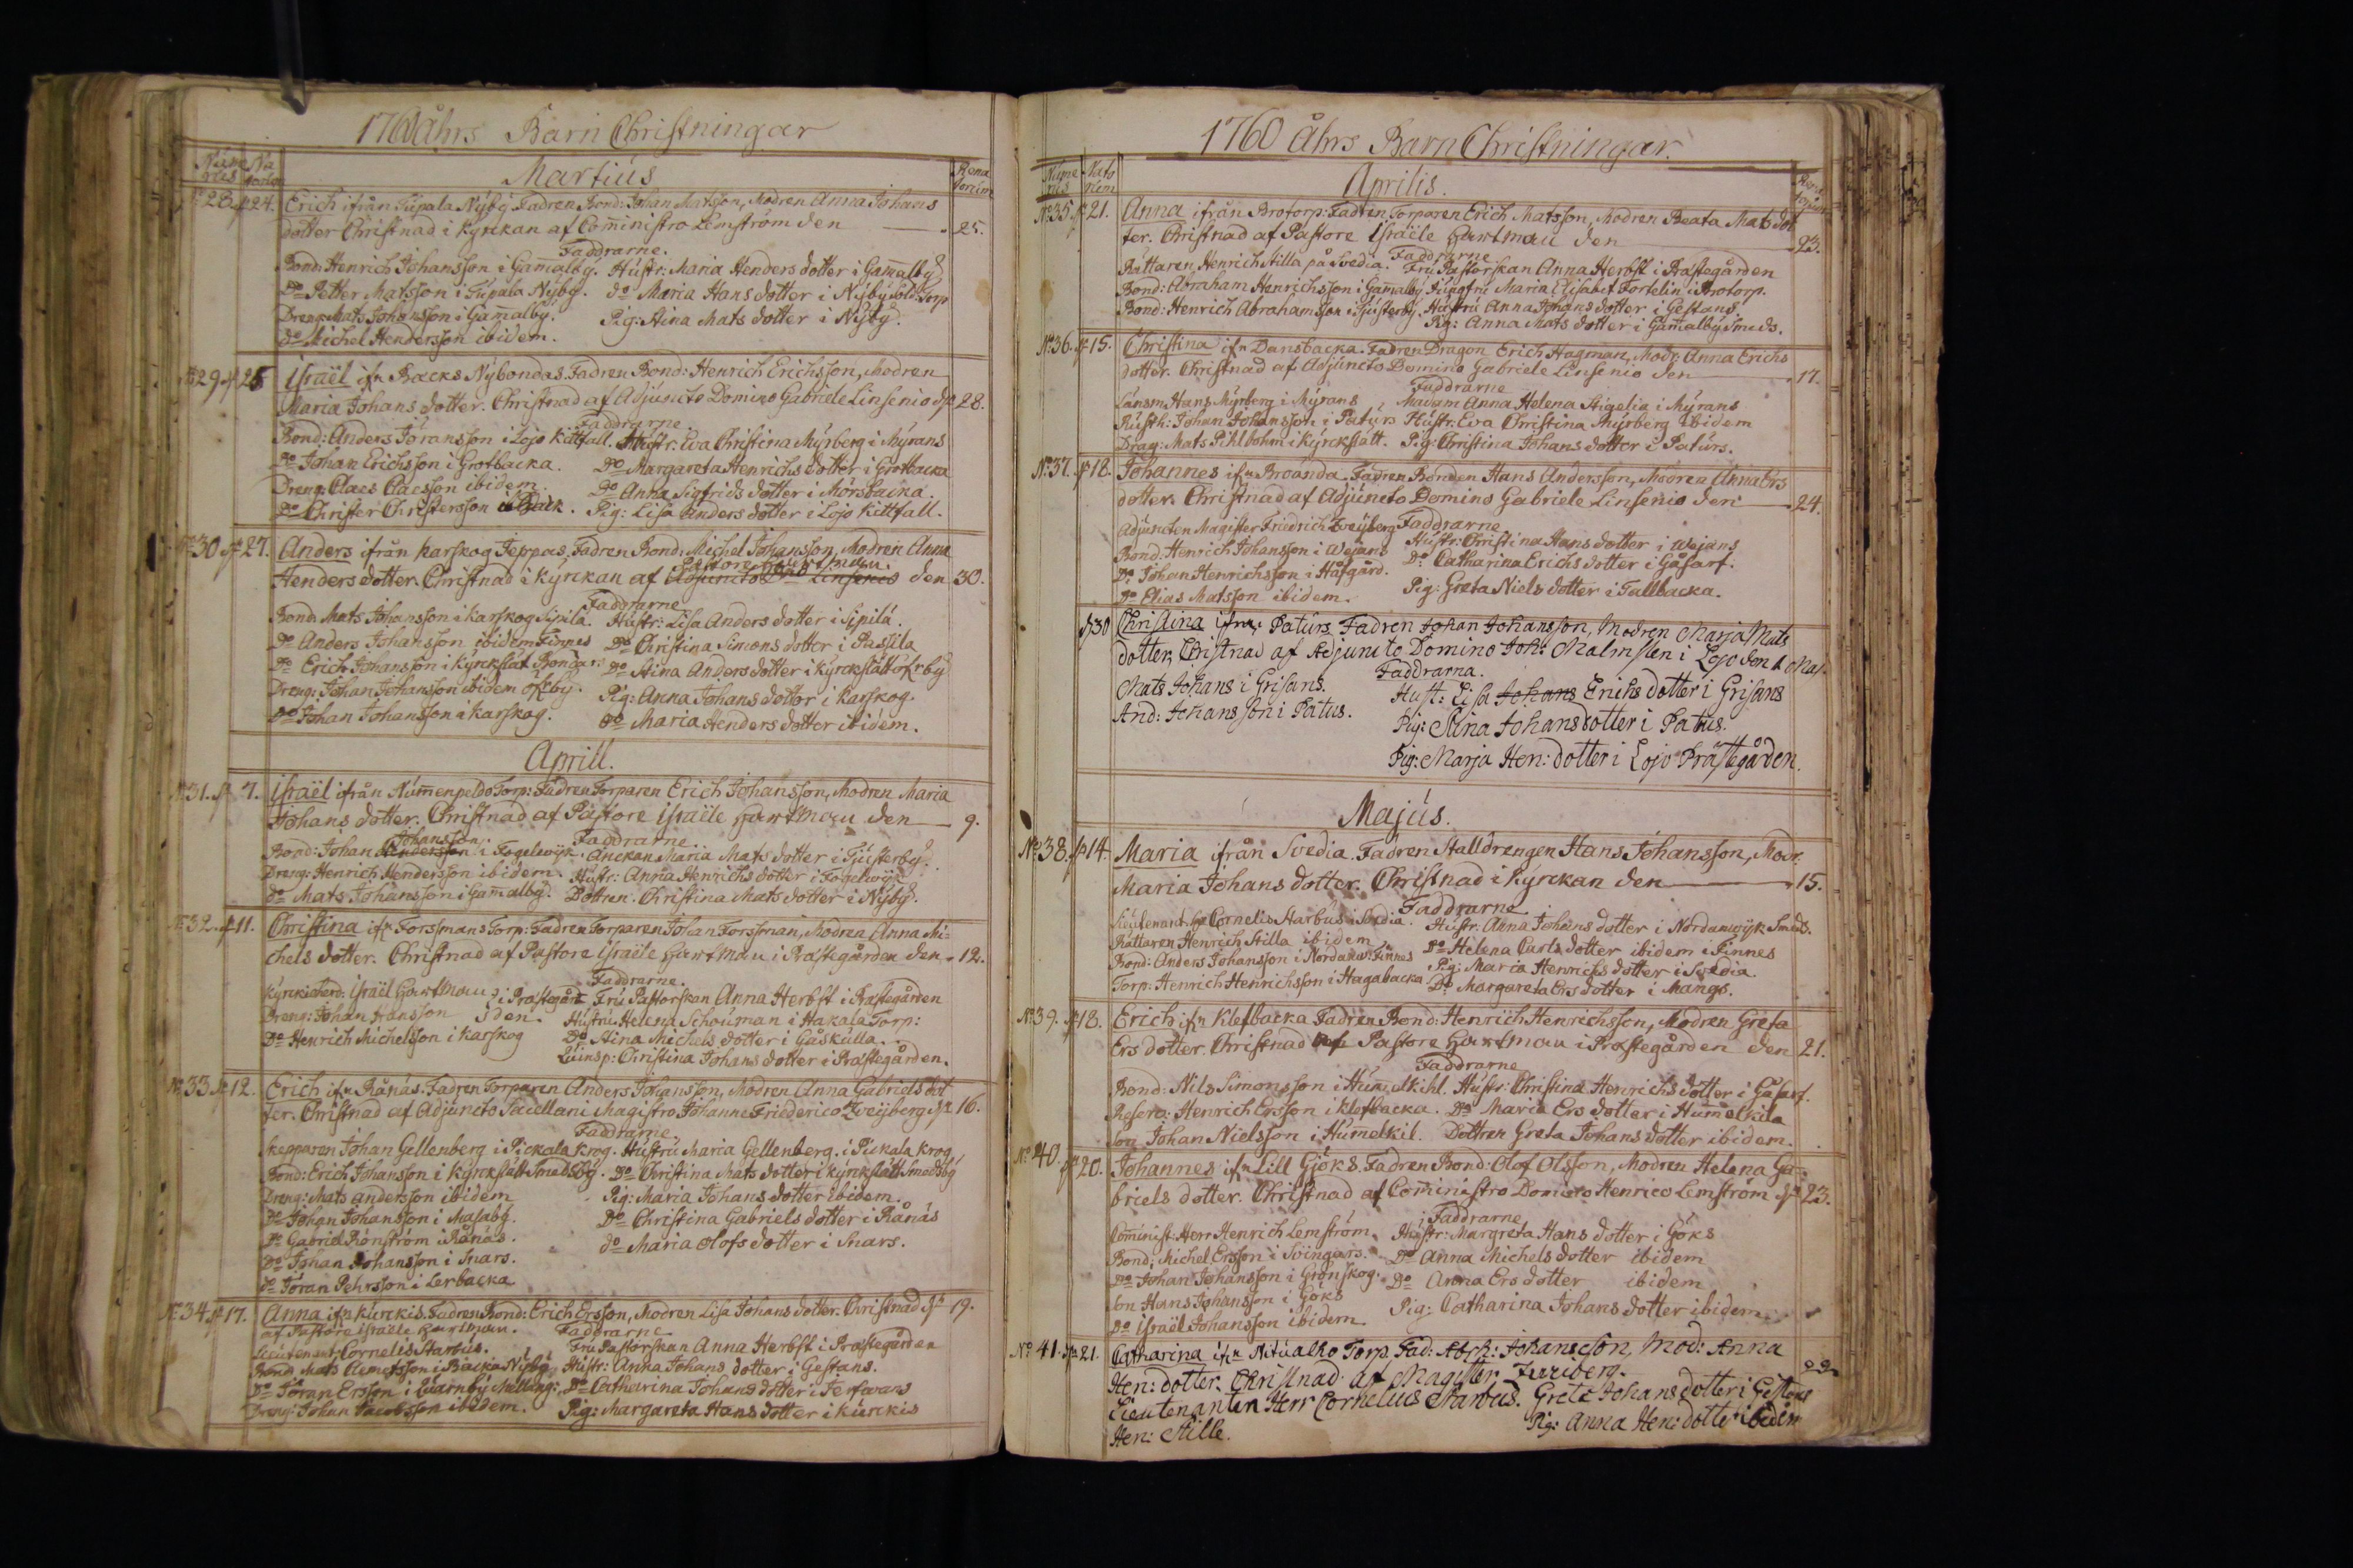 1760 åhrs Barn Christningar
Nume rus Na torum Martius Rena torum
No 28. d. 24. Erich ifrån Tupala Nÿbÿ. Fadren Bond: Johan Matsson, Modren Anna Johans
dotter Christnad i Kÿrckan af Com̄inistro Lemström den 25.
Faddrarne.
Bond: Henrich Johansson i Gam̄albÿ. Hustr: Maria Henders dotter i Gam̄albÿ
Do Petter Matsson i Tupala Nÿbÿ. do Maria Hans dotter i Nÿbÿ Sold: Torp
Dreng: Mats Johansson i Gamalbÿ. Pig: Aina Mats dotter i Nÿbÿ.
do Michel Hendersson ibidem.
No 29. d. 25 Israël ifn Backs Nÿbondas. Fadren Bond: Henrich Erichsson, Modren
Maria Johans dotter. Christnad af Adjuncto Domino Gabriele Linsenio dn 28.
Faddrarne
Bond: Anders Joransson i Lojo Kittfall. Hustr: Eva Christina Mÿrberg i Mÿrans
Do Johan Erichsson i Grotbacka. Do Margareta Henrichs dotter i Grotbacka
Dreng: Claes Claesson ibidem. Do Anna Sigfrids dotter i Morsbacka.
Do Christer Christersson i Back. Pig: Lisa Anders dotter i Lojo Kittfall.
No 30 d. 27. Anders ifrån Karskog Jeppas. Fadren Bond: Michel Johansson, Modren Anna
Pastore Hartman.
Henders dotter. Christnad i Kÿrckan af Adjuncto Dno Linsenio den 30.
Faddrarne
Bond: Mats Johansson i Karskog Sipila. Hustr: Lisa Anders dotter i Sipila.
Do Anders Johansson ibidem Finnes Do Christina Simons dotter i Passila
Do Erich Johansson i Kÿrckslat Bondar: Do Aina Anders dotter i Kÿrckslätt öfrbÿ
Dreng: Johan Johansson ibidem öfrbÿ. Pig: Anna Johans dotter i Karskog.
Do Johan Johansson i Karskog. Do Maria Henders dotter ibidem.
Aprill.
No 31. d. 7. Israël ifrån Num̄enpeldo Torp: Fadren Torparen Erich Johansson, Modren Maria
Johans dotter. Christnad af Pastore Israële Hartman den 9.
Johansson Faddrarne.
Bond: Johan Andersson i Fogelwijk. Anckan Maria Mats dotter i Tjusterbÿ.
Dreng: Henrich Hendersson ibidem. Hustr: Anna Henrichs dotter i Fogelwijk
do Mats Johansson i Gam̄albÿ. Dottren. Christina Mats dotter i Nÿbÿ.
No 32. d. 11. Christina ifn Forsmans Torp: Fadren Torparen Johan Forssman, Modren Anna Mi=
chels dotter. Christnad af Pastore Israële Hartman i Prostegården den 12.
Faddrarne.
Kÿrckioherd: Israël Hartman i Prostegår- Fru Pastorskan Anna Herbst i Prostegården
Dreng: Johan Hansson den. Hustru Helena Schouman i Hakala Torp:
Do Henrich Michelsson i Karskog Do Aina Michels dotter i Gåskulla.
Quinsp: Christina Johans dotter i Prostegården.
No 33. d. 12. Erich ifn Rånäs. Fadren Torparen Anders Johansson, Modren Anna Gabriels dot
ter. Christnad af Adjuncto Sacellani Magistro Johanne Friederico Zweijberg dn 16.
Faddrarne.
Skepparen Johan Gellenberg i Pickala Krog. Hustru Maria Gellenberg. i Pickala Krog
Bond: Erich Johansson i Kÿrckslätt Smedsbÿ. Do Christina Mats dotter i Kÿrckslätt Smedsbÿ
Dreng: Mats Andersson ibidem Pig: Maria Johans dotter ibidem.
Do Johan Johansson i Masabÿ. Do Christina Gabriels dotter i Rånäs
Do Gabriel Rönström i Rånas. do Maria Olofs dotter i Snars.
Do Johan Johansson i Snars.
do Joran Pehrsson i Lerbacka
No 34 d. 17. Anna ifn Kurckis. Fadren Bond: Erich Ersson, Modren Lisa Johans dotter. Christnad dn 19.
af Pastore Israële Hartman. Faddrarne
Lieutenant: Cornelis Starbus. Fru Pastorskan Anna Herbst i Prostegården
Bond: Mats Clemetsson i Backa Nÿbÿ. Hustr: Anna Johans dotter i Gestans.
Do Joran Ersson i Quarnbÿ Mellang: Do Catharina Johans dotter i Jerfwars
Dreng: Johan Jacobsson ibidem. Pig: Margareta Hans dotter i Kurckis
1760 åhrs Barn Christningar.
Nume rus Nato rum Aprilis. Rena torum
No 35. d. 21. Anna ifrån Brotorp: Fadren Torparen Erich Matsson, Modren Beata Mats dot
ter. Christnad af Pastore Israële Hartman den 23.
Faddrarne
Rättaren Henrich Stilla på Svedia. Fru Pastorskan Anna Herbst i Prostegården
Bond: Abraham Henrichsson i Gam̄albÿ. Jungfru Maria Elisabet Fortelin i Brotorp.
Bond: Henrich Abrahamsson i Tjusterbÿ. Hustru Anna Johans dotter i Gestans.
Pig: Anna Mats dotter i Gam̄albÿ Smeds.
No 36. d. 15. Christina ifn Dansbacka. Fadren Dragon Erich Hagman, Modr: Anna Erichs
dotter. Christnad af Adjuncto Domino Gabriele Linsenio den 17.
Faddrarne
Länsm: Hans Mÿrberg i Mÿrans Madam Anna Helena Stigelia i Mÿrans
Rusth: Johan Johansson i Paturs Hustr: Eva Christina Mÿrberg ibidem
Drag: Mats Pihlbohm i Kÿrckslätt. Pig: Christina Johans dotter i Paturs.
No 37. d. 18. Johannes ifn Broända. Fadren Bonden Hans Andersson, Modren Anna Ers
dotter. Christnad af Adjuncto Domino Gabriele Linsenio den 24.
Adjuncten Magister Friedrich Zweijberg Faddrarne
Bond: Henrich Johansson i Wejans Hustr: Christina Hans dotter i Wejans
Do Johan Henrichsson i Håfgård. Do Catharina Erichs dotter i Gåsarf.
Do Elias Matsson ibidem. Pig: Greta Niels dotter i Tallbacka.
d. 30 Christina ifrån Paturs Fadren Johan Johansson, Modren Marja Mats
dotter, Christnad af Adjuncto Domino Joh: Malmsten i Lojo den 1 Maj.
Faddrarna.
Mats Johans i Grisans. Hust: Lisa Johans Erichs dotter i Grisans
And: Johansson i Patus. Pig: Stina Johans dotter i Patus.
Pig: Marja Hen: dotter i Lojo Prästegården.
Majus.
No 38. d. 14. Maria ifrån Svedia. Fadren Stalldrengen Hans Johansson, Modr.
Maria Johans dotter. Christnad i Kÿrckan den 15.
Faddrarne.
Lieutenant: Cornelis Starbus i Svedia. Hustr: Anna Johans dotter i Nordanwijk Smeds.
Rättaren Henrich Stilla ibidem Do Helena Carls dotter ibidem i Finnes
Bond: Anders Johansson i Nordanw: Finnes Pig: Maria Henrichs dotter i Svedia
Torp: Henrich Henrichsson i Hagabacka Do Margareta Ers dotter i Mangs.
No 39. d. 18. Erich ifn Klefbacka Fadren Bond: Henrich Henrichsson, Modren Greta
Ers dotter. Christnad af Pastore Hartman i Prostegården den 21.
Faddrarne
Bond: Nils Simonsson i Hum̄elkihl. Hustr: Christina Henrichs dotter i Gåsarf.
Reserv: Henrich Ersson i Klefbacka. Do Maria Ers dotter i Hum̄elkila
Son Johan Nielsson i Hum̄elkil. Dottren Greta Johans dotter ibidem.
No 40. d. 20. Johannes ifn Lill Gjöks. Fadren Bond: Olof Olsson, Modren Helena Ga=
briels dotter. Christnad af Com̄inistro Domino Henrico Lemström dn 23.
Faddrarne
Com̄inist: Herr Henrich Lemström. Hustr: Margreta Hans dotter i Göks
Bond: Michel Ersson i Svingars. Do Anna Michels dotter ibidem
Do Johan Johansson i Grönskog. Do Anna Ers dotter ibidem
Son Hans Johansson i Göks Pig: Catharina Johans dotter ibidem
Do Israël Johansson ibidem
No 41. d. 21. Catharina ifn Nitualho Torp. Fad: Abrh: Johansson, Mod: Anna
Hen: dotter. Christnad af Magister Zweiberg. 22
Lieutenanten Herr Cornelius Starbus. Greta Johans dotter i Gestans
Hen: Stille. Pig: Anna Hen: dotter ibidem